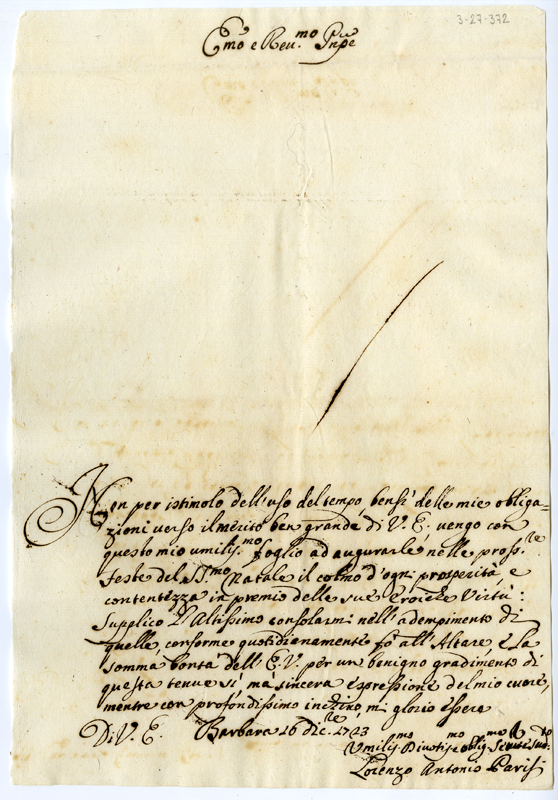 3-27-372
Em̃o e Reu.mo Pñpe
Non per istimolo dell'uso del tempo, bensi' delle mie obliga-
zioni verso il merito ben grande di V. E., vengo con
questo mio umiliss.mo foglio ad augurarle nelle pross.e
feste del SS.mo Natale il colmo d'ogni prosperità, e
contentezza in premio delle sue Eroiche Virtù:
Supplico l'Altissimo consolarmi nell'adempimento di
quelle, conforme quotidianamente fò all'Altare, e la
somma bontà dell'E.V. per un benigno gradimento di
questa tenue sì, mà sincera espressione del mio cuore,
mentre con profondissimo inchino mi glorio essere
Di V. E. Barbara 16 Dic.re 1723
Umilis.mo Diuotis.mo oblig.mo
Lorenzo Antonio Parisi